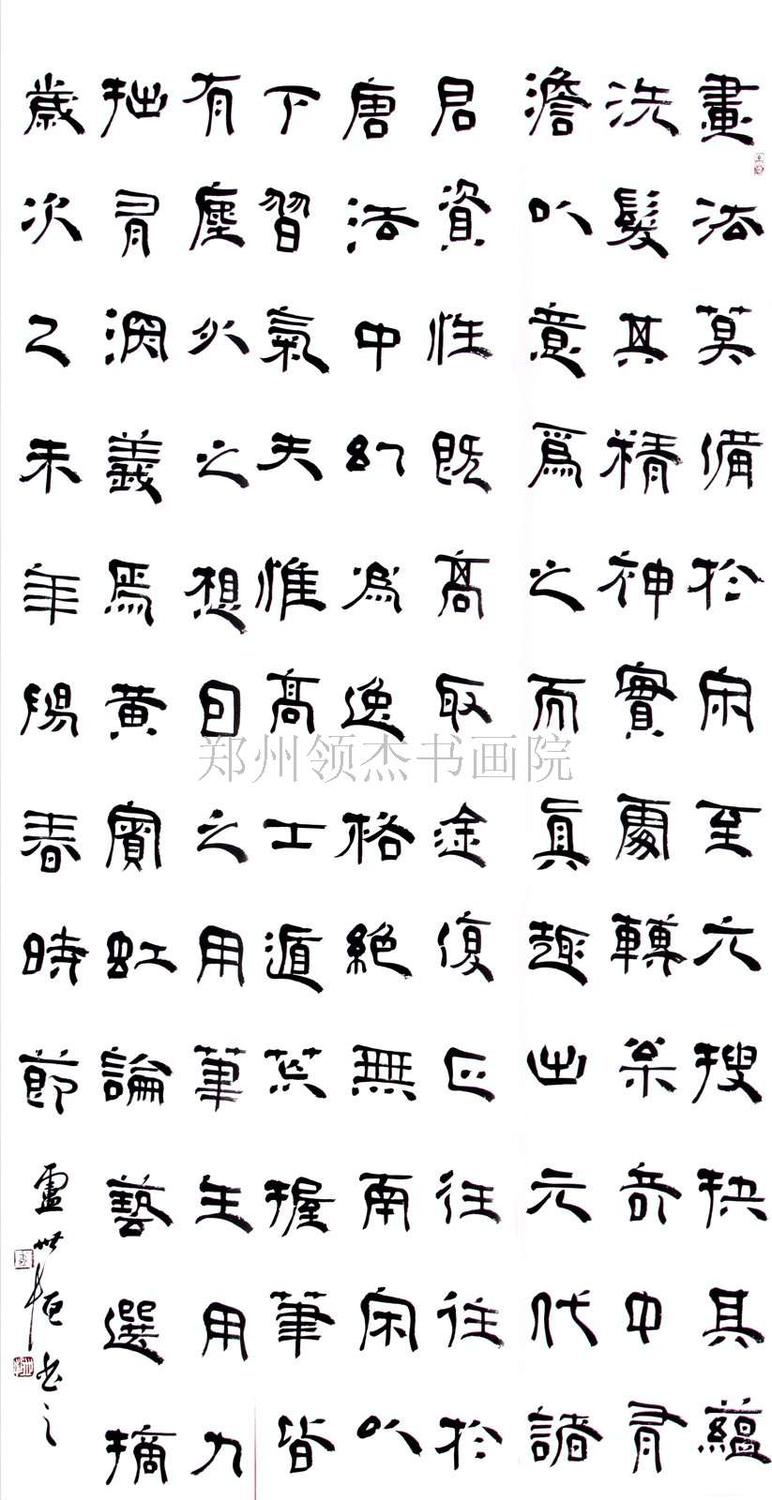 畫法莫備於宋至元搜抉其蘊
洗髮其精神實處轉枀奇中有
澹以意為之而真趣出元代諸
君資性既高取途復正往往於
唐法中幻為逸格絕無南宋以
下習氣夫惟高士遁荒握筆皆
有塵外之想日之用筆生用力
拙有深義焉黃賓虹論藝選摘
歲次乙未年陽春時節
盧世恒書之
郑州领杰书画院